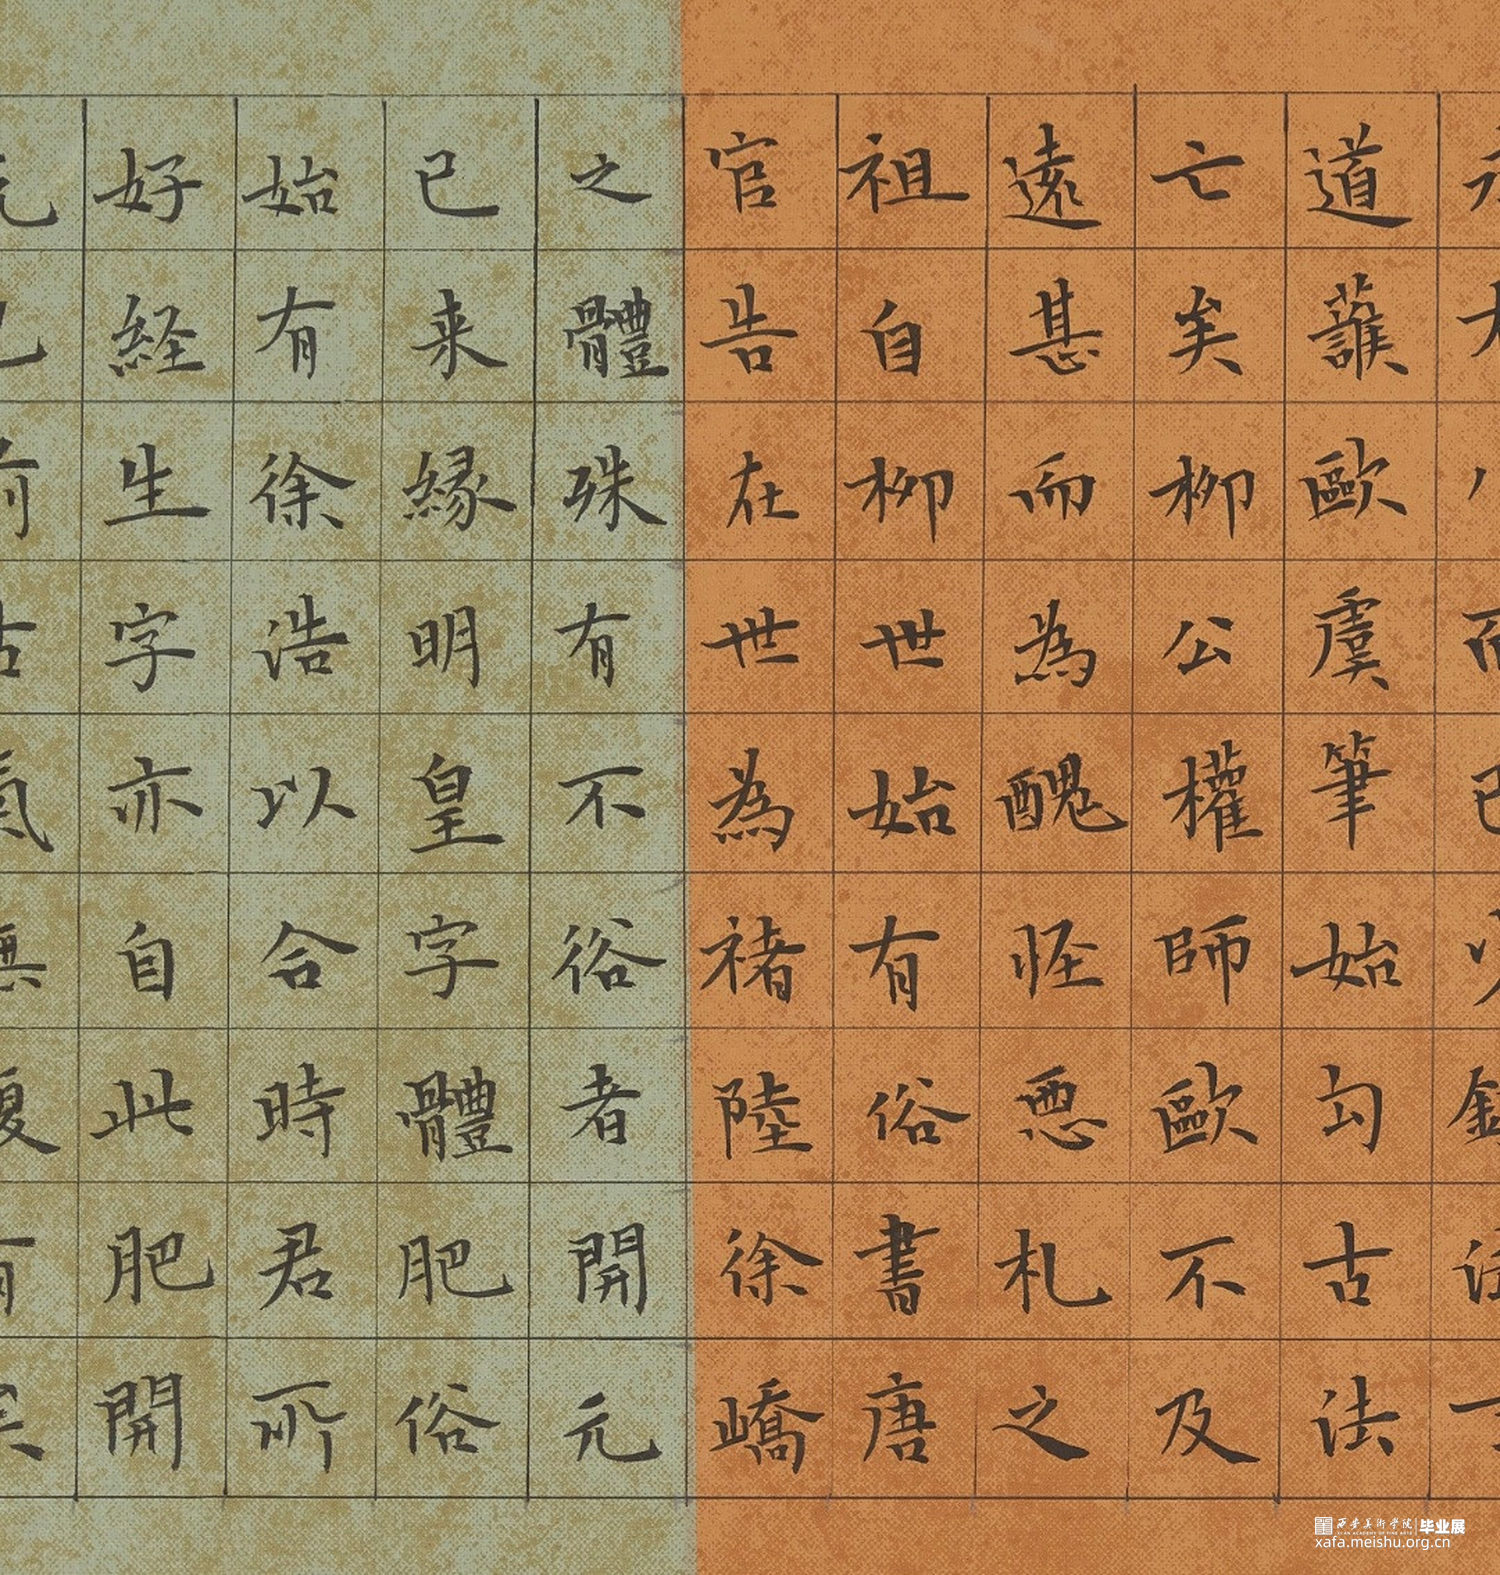 道護歐虞筆始勻古法
亡矣柳公權師歐不及
遠甚而為醜怪惡札之
祖自柳世始有俗書唐
官告在世為褚陸徐嶠
之體殊有不俗者開元
已来縁明皇字體肥俗
始有徐浩以合時君所
好経生字亦自此肥開
元已前古氣無復有矣
西安美術學院 毕业展
XI'AN ACADEMY OF FINE ARTS
xafa.meishu.org.cn